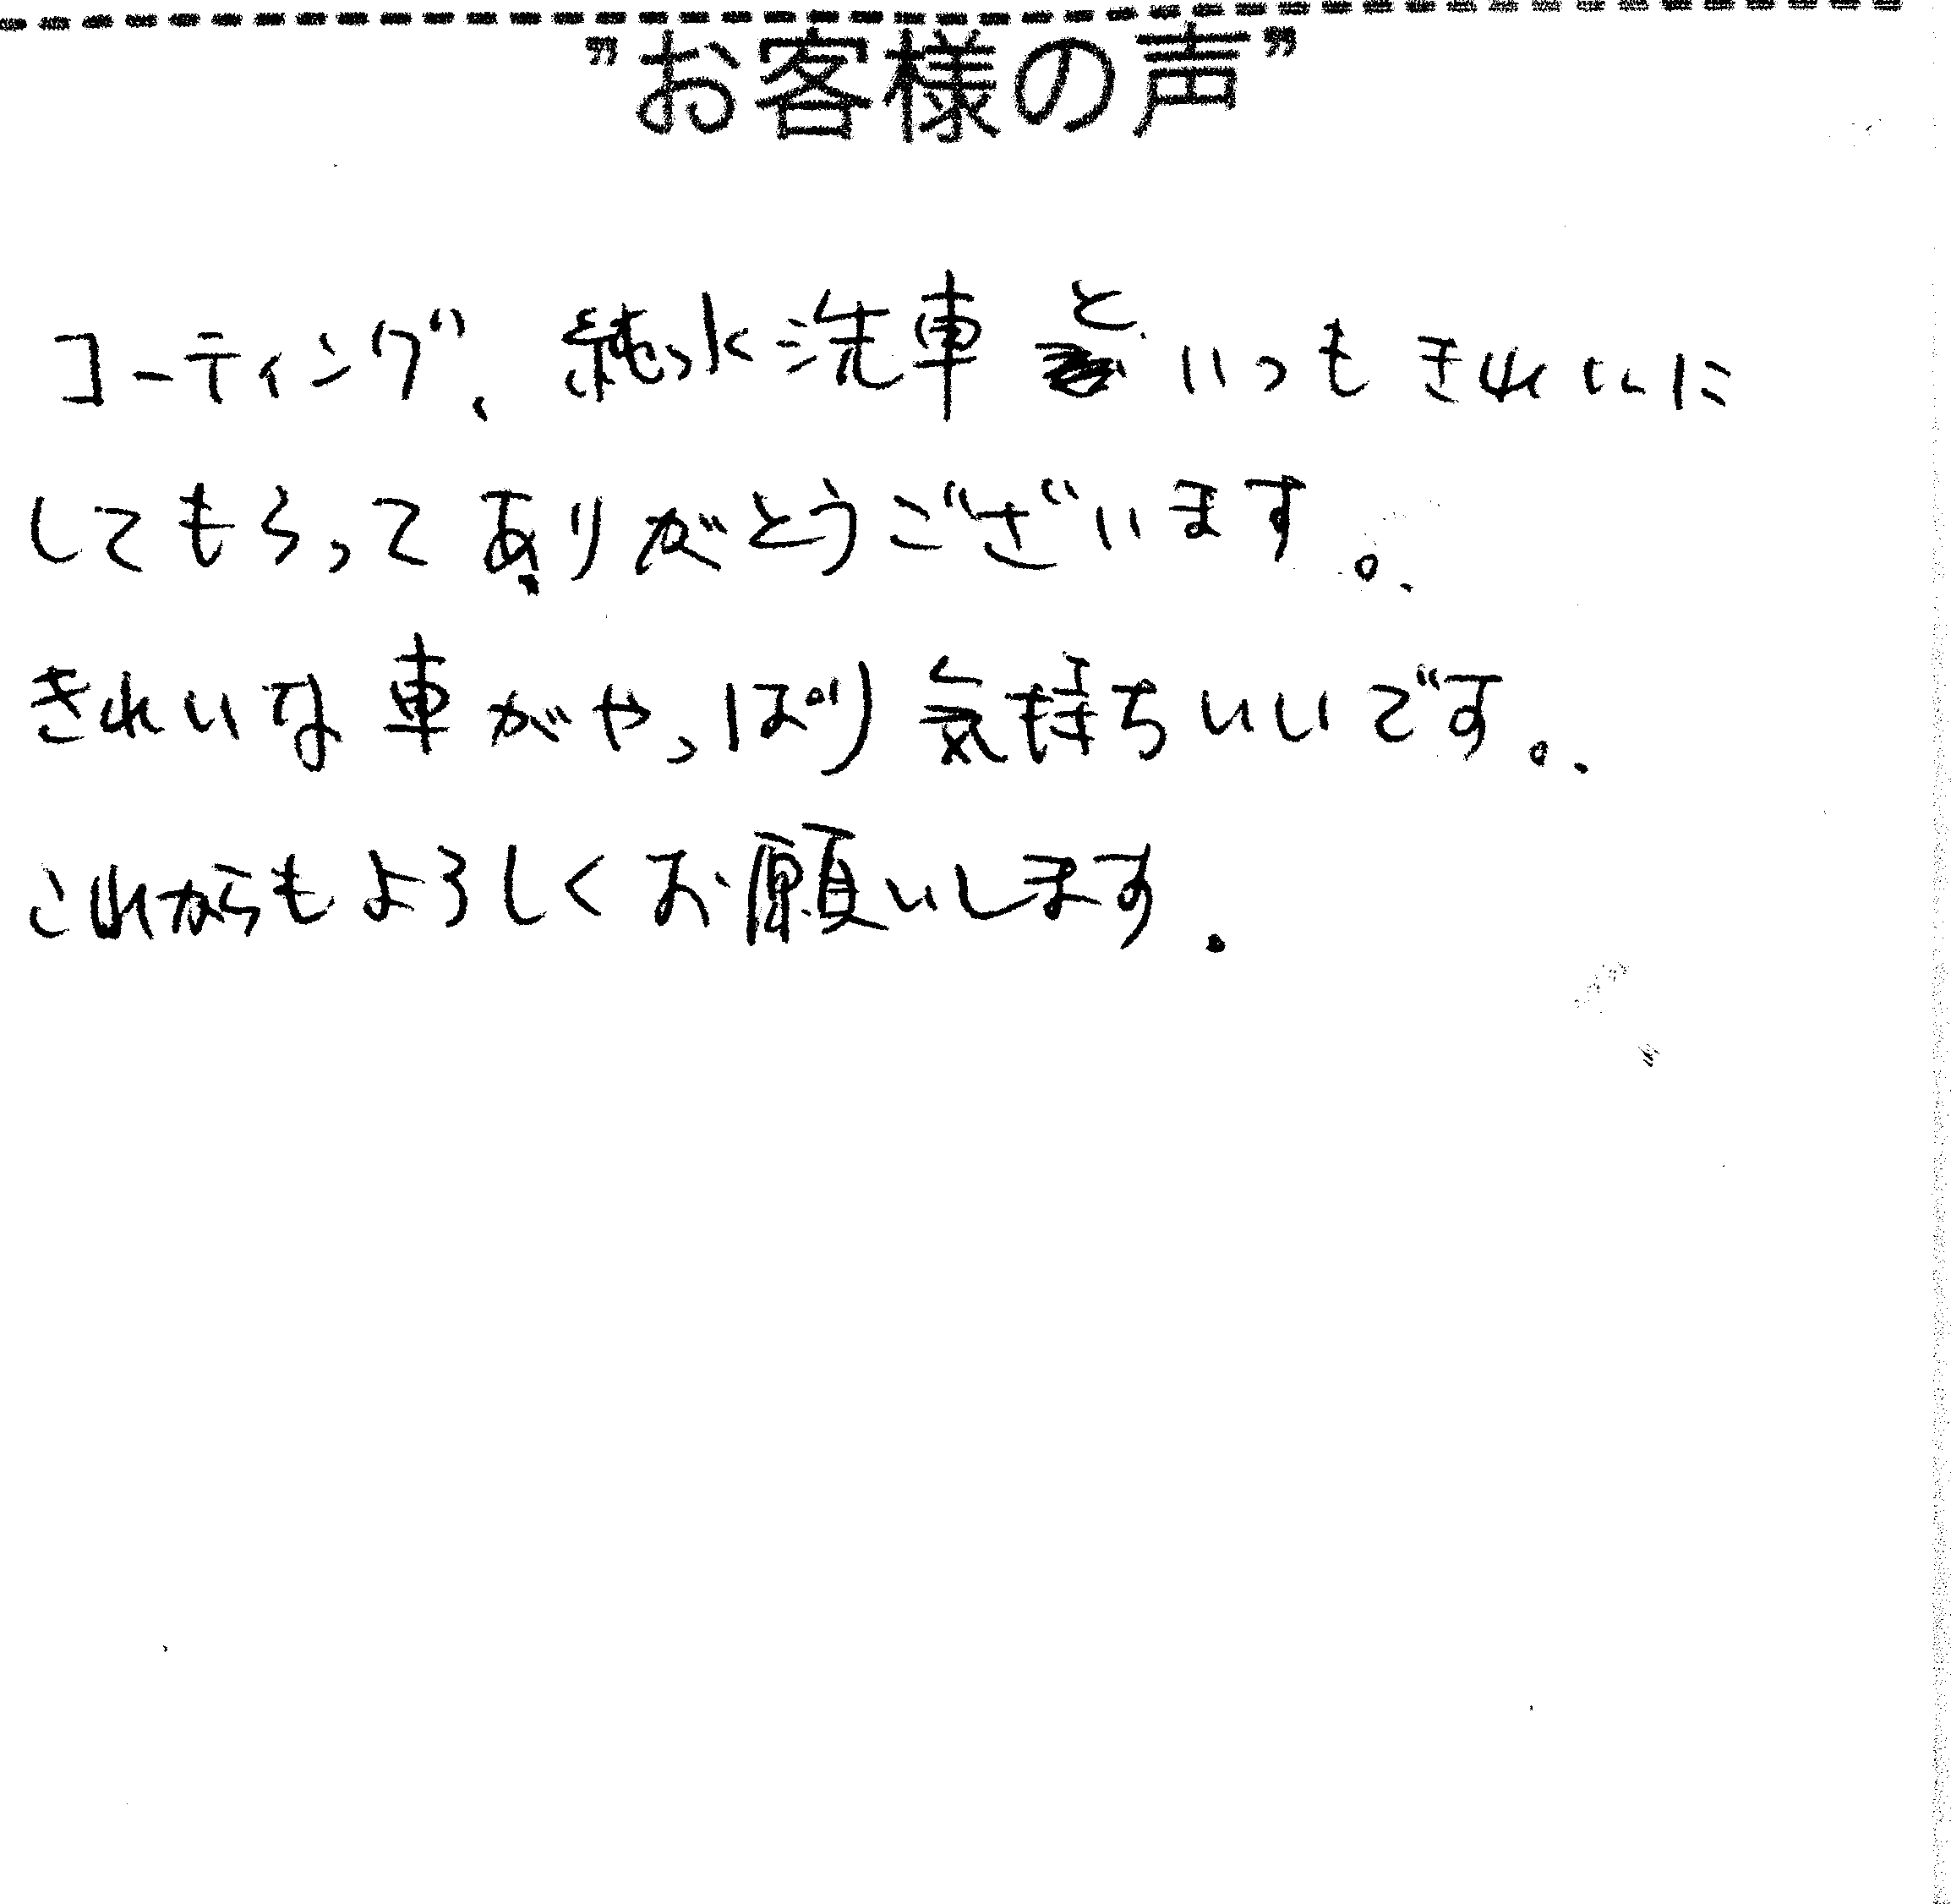 ”お客様の声”
コーティング、純水洗車といつもきれいに
してもらってありがとうございます。
きれいな車がやっぱり気持ちいいです。
これからもよろしくお願いします.